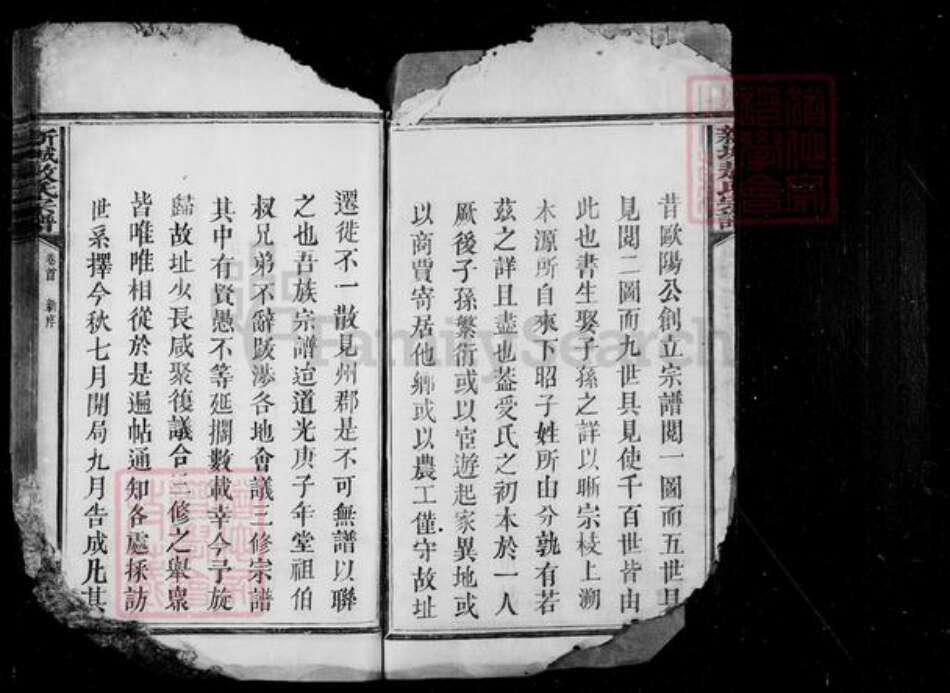 昔歐陽公創立宗譜閱一圖而五世具
見閱二圖而九世具見使千百世皆由
此也書生娶子孫之詳以晰宗枝上溯
木源所自來下昭子姓所由分孰有若
茲之詳且盡也蓋受氏之初本於一人
厥後子孫繁衍或以宦遊起家異地或
以商賈寄居他鄉或以農工僅守故址
遷徙不一散見州郡是不可無譜以聯
之也吾族宗譜迨道光庚子年堂祖伯
叔兄弟不辭跋涉各地會議三修宗譜
其中有賢愚不等延擱數載幸今予旋
歸故址少長咸聚復議合三修之舉衆
皆唯唯相從於是遍帖通知各處採訪
世系擇今秋七月開局九月告成凡其
氏宗譜
卷首 新序
FamilySearch